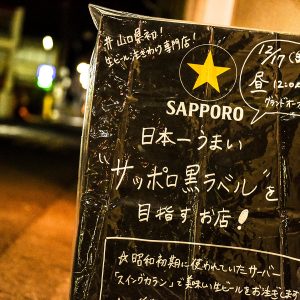 # 山口県初!
生ビール注ぎわけ専門店!
12/17(
昼 12:00
グランドオー
SAPPORO
日本一うまい
"サッポロ黒ラベル"を
目指すお店!
☆昭和初期に使われていたサーバー
「スイングカラン」で美味い生ビールをお注ぎします